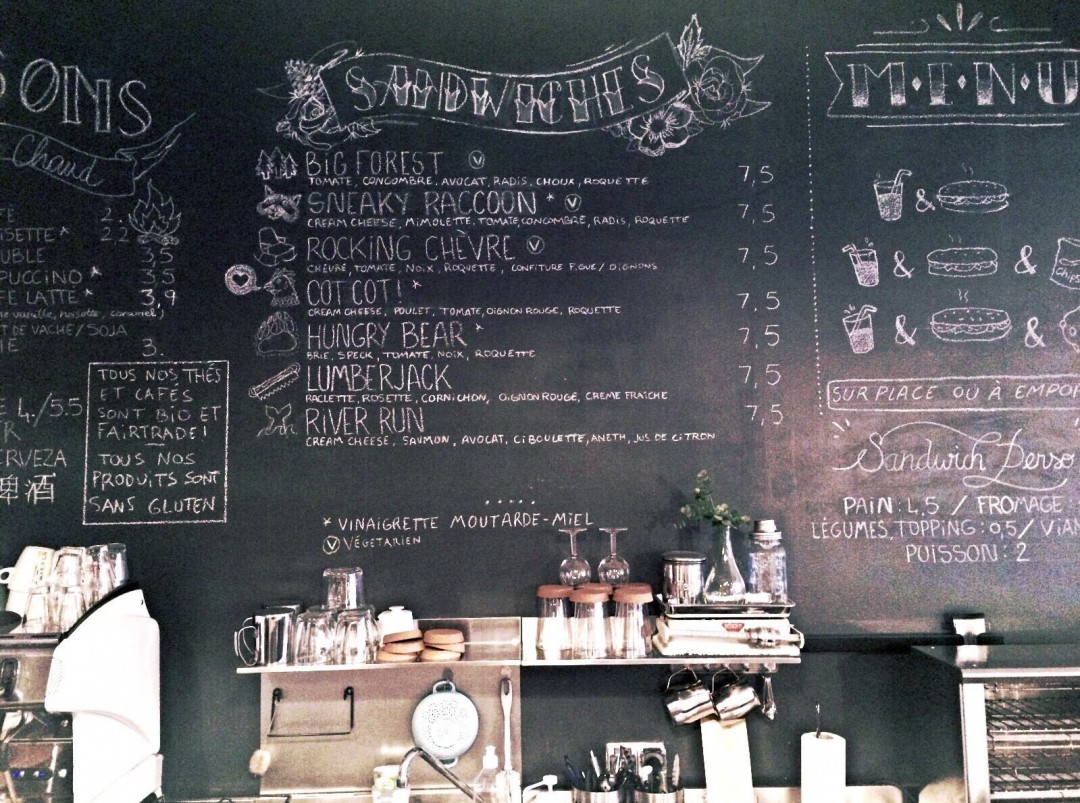 SONS
Chaud
FE 2.
ISETTE * 2.2
UBLE 3,5
PUCCINO * 3,5
FE LATTE * 3,9
vanille, noisette, caramel)
T DE VACHE / SOJA
IE 3.
4./5.5
ERVEZA
啤酒
TOUS NOS THÉS
ET CAFÉS
SONT BIO ET
FAIRTRADE!
TOUS NOS
PRODUITS SONT
SANS GLUTEN
SANDWICHES
BIG FOREST V 7,5
TOMATE, CONCOMBRE, AVOCAT, RADIS, CHOUX, ROQUETTE
SNEAKY RACCOON * V 7,5
CREAM CHEESE, MIMOLETTE, TOMATE, CONCOMBRE, RADIS, ROQUETTE
ROCKING CHÈVRE V 7,5
CHÈVRE, TOMATE, NOIX, ROQUETTE, CONFITURE FIGUE / OIGNONS
COT COT! * 7,5
CREAM CHEESE, POULET, TOMATE, OIGNON ROUGE, ROQUETTE
HUNGRY BEAR * 7,5
BRIE, SPECK, TOMATE, NOIX, ROQUETTE
LUMBERJACK 7,5
RACLETTE, ROSETTE, CORNICHON, OIGNON ROUGE, CREME FRAICHE
RIVER RUN 7,5
CREAM CHEESE, SAUMON, AVOCAT, CIBOULETTE, ANETH, JUS DE CITRON
* VINAIGRETTE MOUTARDE-MIEL
V VÉGÉTARIEN
M·E·N·U
&
& & Chips
& &
SUR PLACE OU À EMPOR
Sandwich Perso
PAIN: 4,5 / FROMAGE
LÉGUMES, TOPPING: 0,5 / VIAN
POISSON: 2